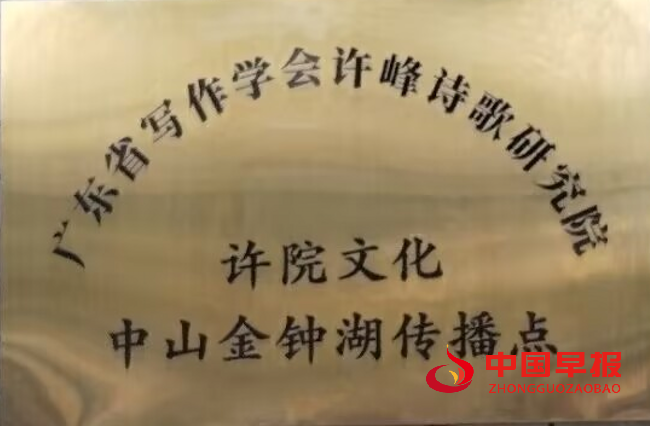 广东省写作学会许峰诗歌研究院
许院文化
中山金钟湖传播点
中国早报
ZHONGGUOZAOBAO